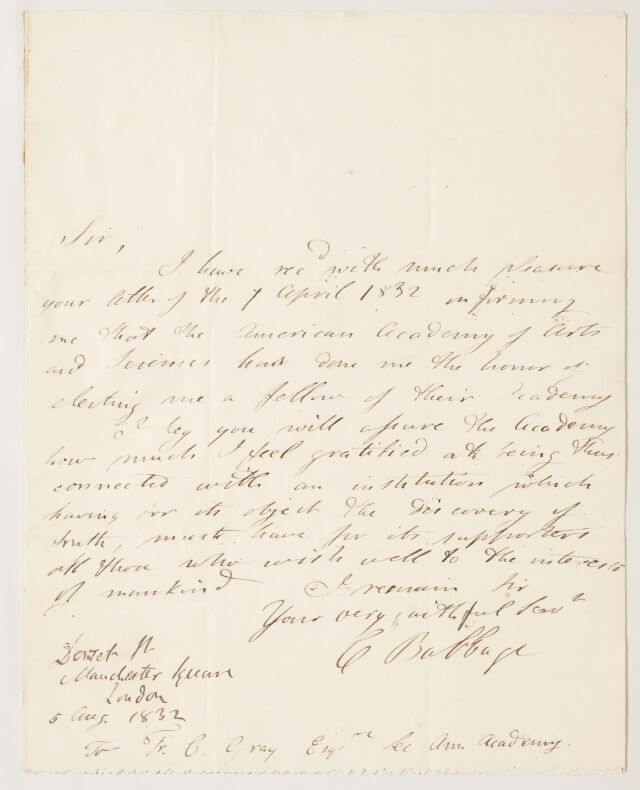 Sir,
I have rec'd with much pleasure
your letter of the 7 April 1832 informing
me that the American Academy of Arts
and Sciences has done me the honor of
electing me a fellow of their Academy
I beg you will assure the Academy
how much I feel gratified at being thus
connected with an institution which
having for its object the Discovery of
truth, must have for its supporters
all those who wish well to the interests
of mankind
I remain Sir
Your very faithful Servt
C Babbage
Dorset St
Manchester Square
London
5 Aug. 1832
To Fr. C. Gray Esqre Sec Am. Academy.